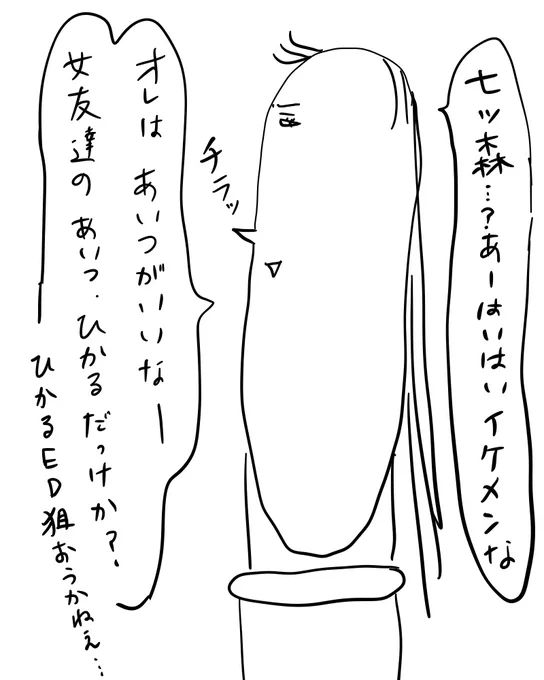 七ッ森…?あーはいはいイケメンな
チラッ
オレは あいつがいいなー
女友達の あいつ.ひかるだっけか?.
ひかるED狙おうかねぇ…